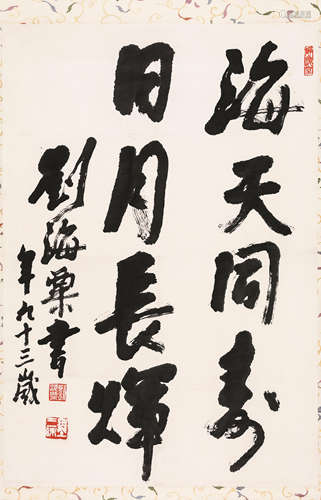 海天同寿
日月長輝
劉海粟書
年九十三歲